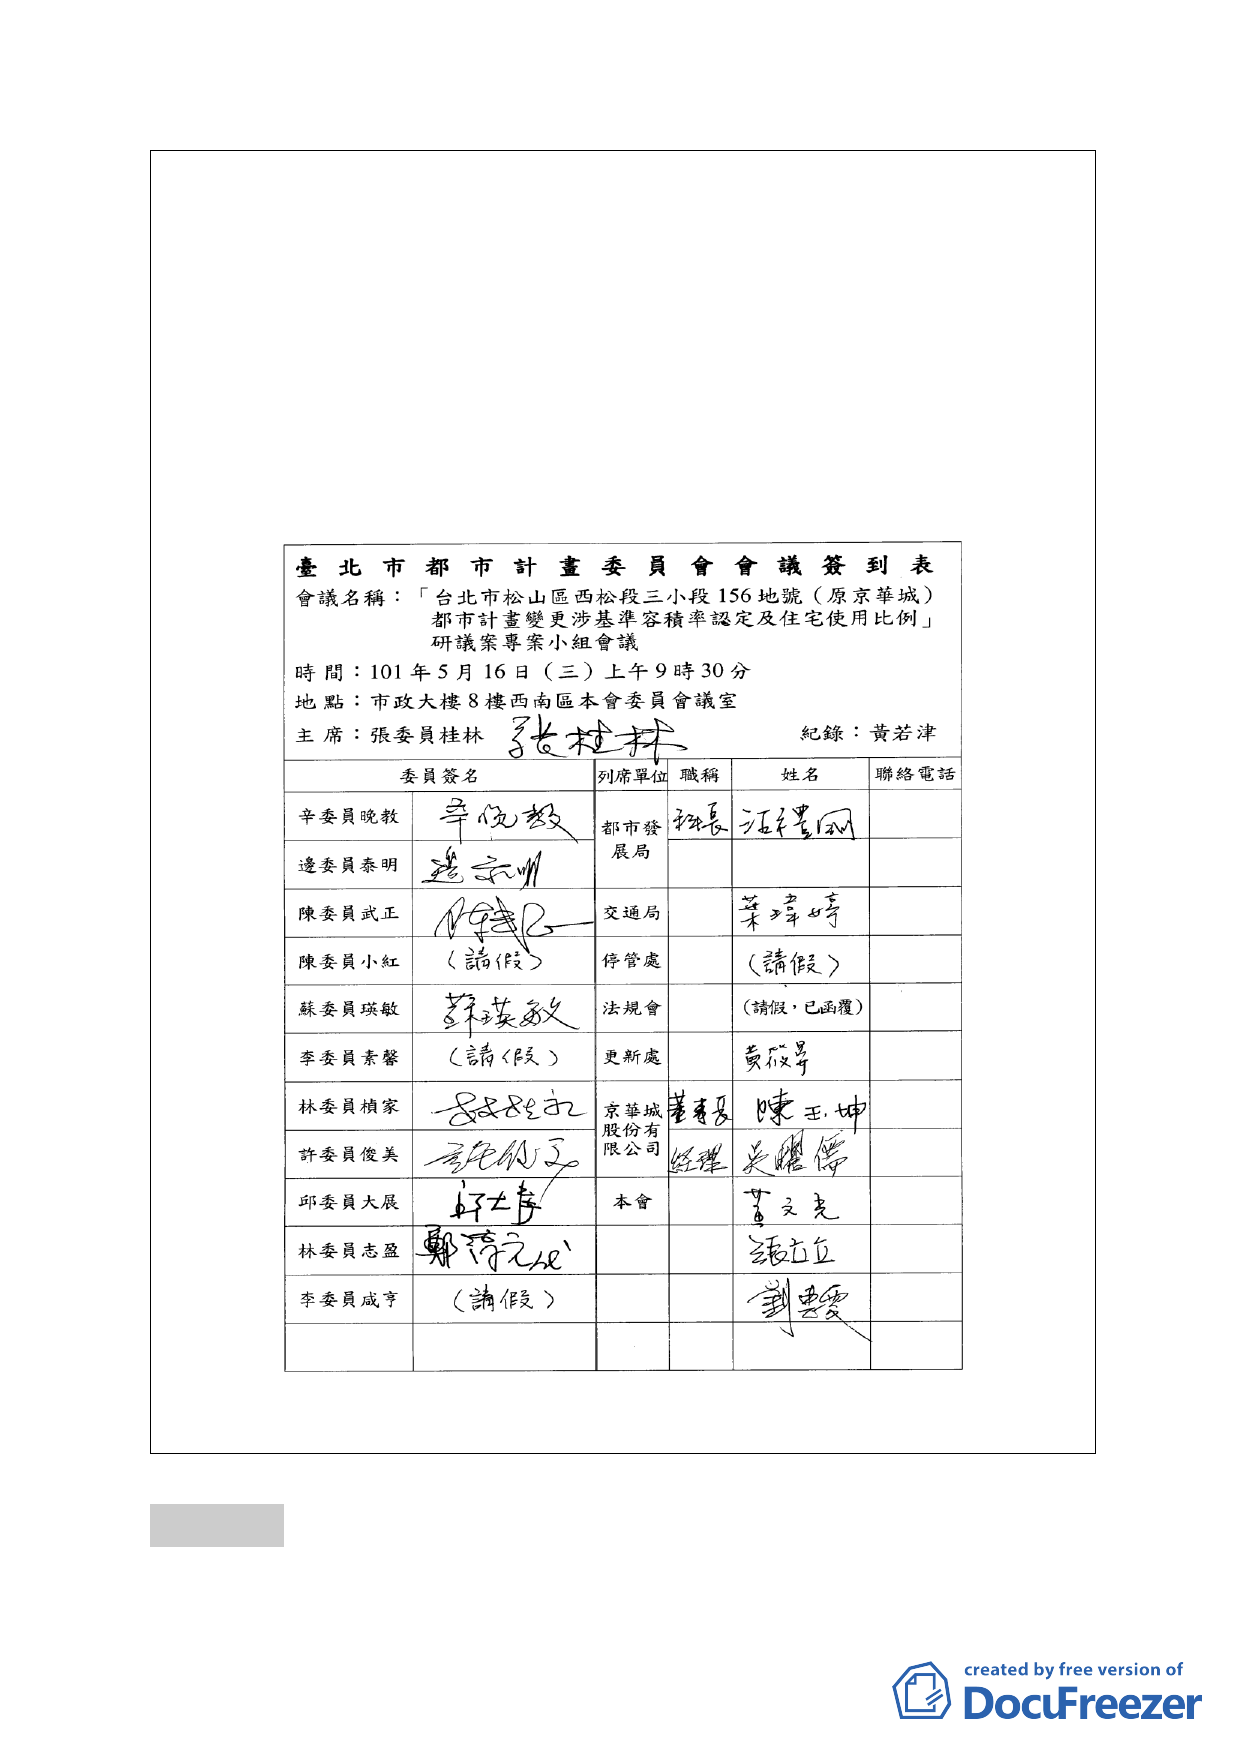 臺北市都市計畫委員會會議簽到表
會議名稱：「台北市松山區西松段三小段156地號（原京華城）
都市計畫變更涉基準容積率認定及住宅使用比例」
研議案專案小組會議
時間：101年5月16日（三）上午9時30分
地點：市政大樓8樓西南區本會委員會議室
主席：張委員桂林 張桂林 紀錄：黃若津
委員簽名 列席單位 職稱 姓名 聯絡電話
辛委員晚教 辛晚教 都市發展局 科長
邊委員泰明 邊泰明
陳委員武正 陳武正 交通局 葉瑋婷
陳委員小紅 （請假） 停管處 （請假）
蘇委員瑛敏 蘇瑛敏 法規會 （請假，已函覆）
李委員素馨 （請假） 更新處 黃筱昇
林委員楨家 林楨家 京華城股份有限公司 董事長 陳玉坤
許委員俊美 許俊美 經理 吳曜儒
邱委員大展 邱大展 本會 黃文光
林委員志盈 鄭淳元代 張立立
李委員咸亨 （請假） 劉惠雯
created by free version of
DocuFreezer